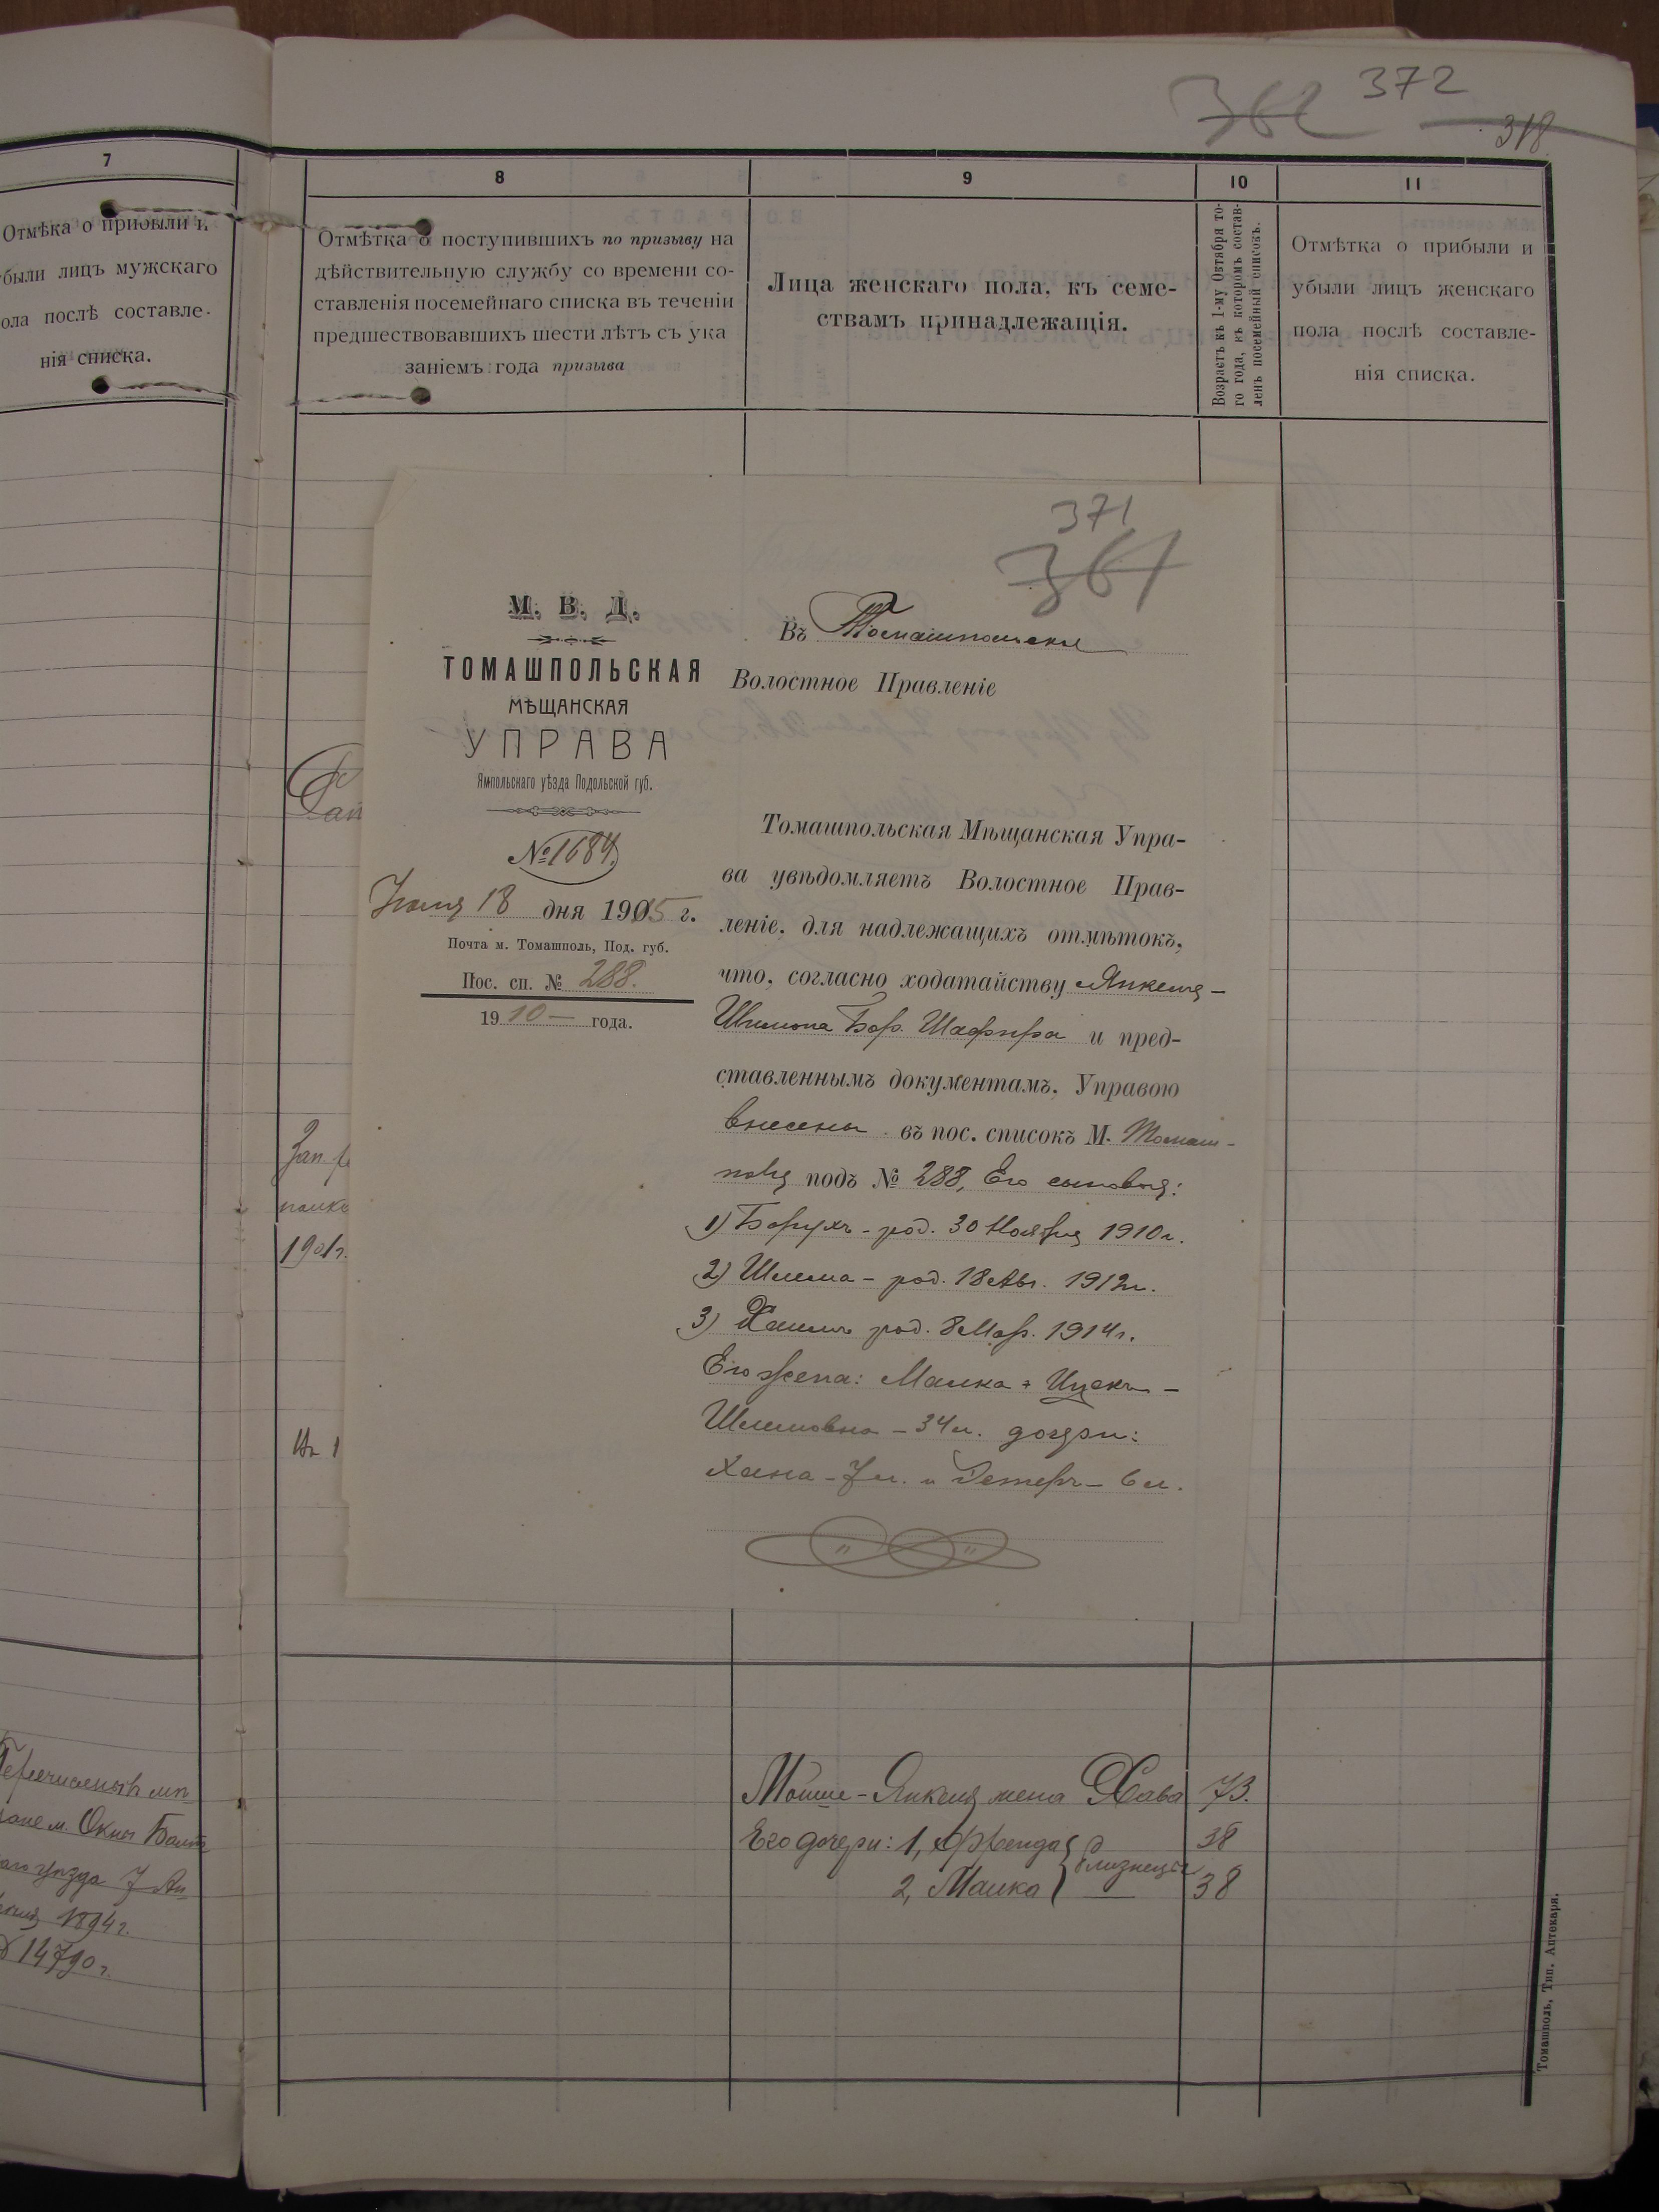 362 372
318
7
Отмѣка о прибыли и
были лицъ мужскаго
ола послѣ составле-
нія списка.
8
Отмѣтка о поступившихъ по призыву на
дѣйствительную службу со времени со-
ставленія посемейнаго списка въ теченіи
предшествовавшихъ шести лѣтъ съ ука
заніемъ года призыва
9
Лица женскаго пола, къ семе-
ствамъ принадлежащія.
10
Возрастъ къ 1-му Октября то-
го года, въ которомъ состав-
ленъ посемейный списокъ.
11
Отмѣтка о прибыли и
убыли лицъ женскаго
пола послѣ составле-
нія списка.
371
361
М. В. Д.
ТОМАШПОЛЬСКАЯ
МѢЩАНСКАЯ
УПРАВА
Ямпольскаго уѣзда Подольской губ.
№ 1684.
18 дня 1915 г.
Почта м. Томашполь, Под. губ.
Пос. сп. № 288.
1910 — года.
Въ Томашпольское
Волостное Правленіе
Томашпольская Мѣщанская Упра-
ва увѣдомляетъ Волостное Прав-
леніе, для надлежащихъ отмѣтокъ,
что, согласно ходатайству Янкеля-
Шимона Бор. Шафира и пред-
ставленнымъ документамъ, Управою
внесены въ пос. списокъ М. Томаш-
поля подъ № 288, Его сыновья:
1) Борухъ - род. 30 Ноября 1910 г.
2) Шлема - род. 18 Авг. 1912 г.
3) Хаимъ род. 8 Мар. 1914 г.
Его жена: Малка + Ицекъ-
Шлемовна - 34 л. дочери:
Хана - 7 л. и Эстеръ - 6 л.
Зап.
1901 г.
Перечисленъ
м. Окны Балт
уѣзда 7 Ап
1894 г.
14790 г.
Мошие-Янкеля жена Хава 73.
Его дочери: 1, Фрейда близнецы 38
2, Малка — 38
Томашполь, Тип. Аптекаря.